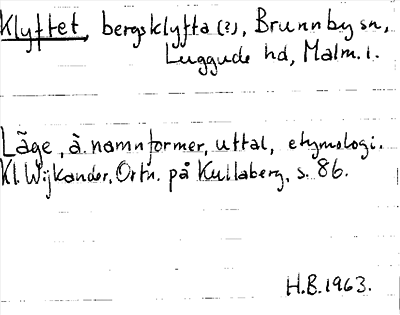 Klyftet, bergsklyfta (?), Brunnby sn,
Luggude hd, Malm. l.
Läge, ä. namnformer, uttal, etymologi.
Kl. Wijkander, Ortn. på Kullaberg, s. 86.
H.B. 1963.